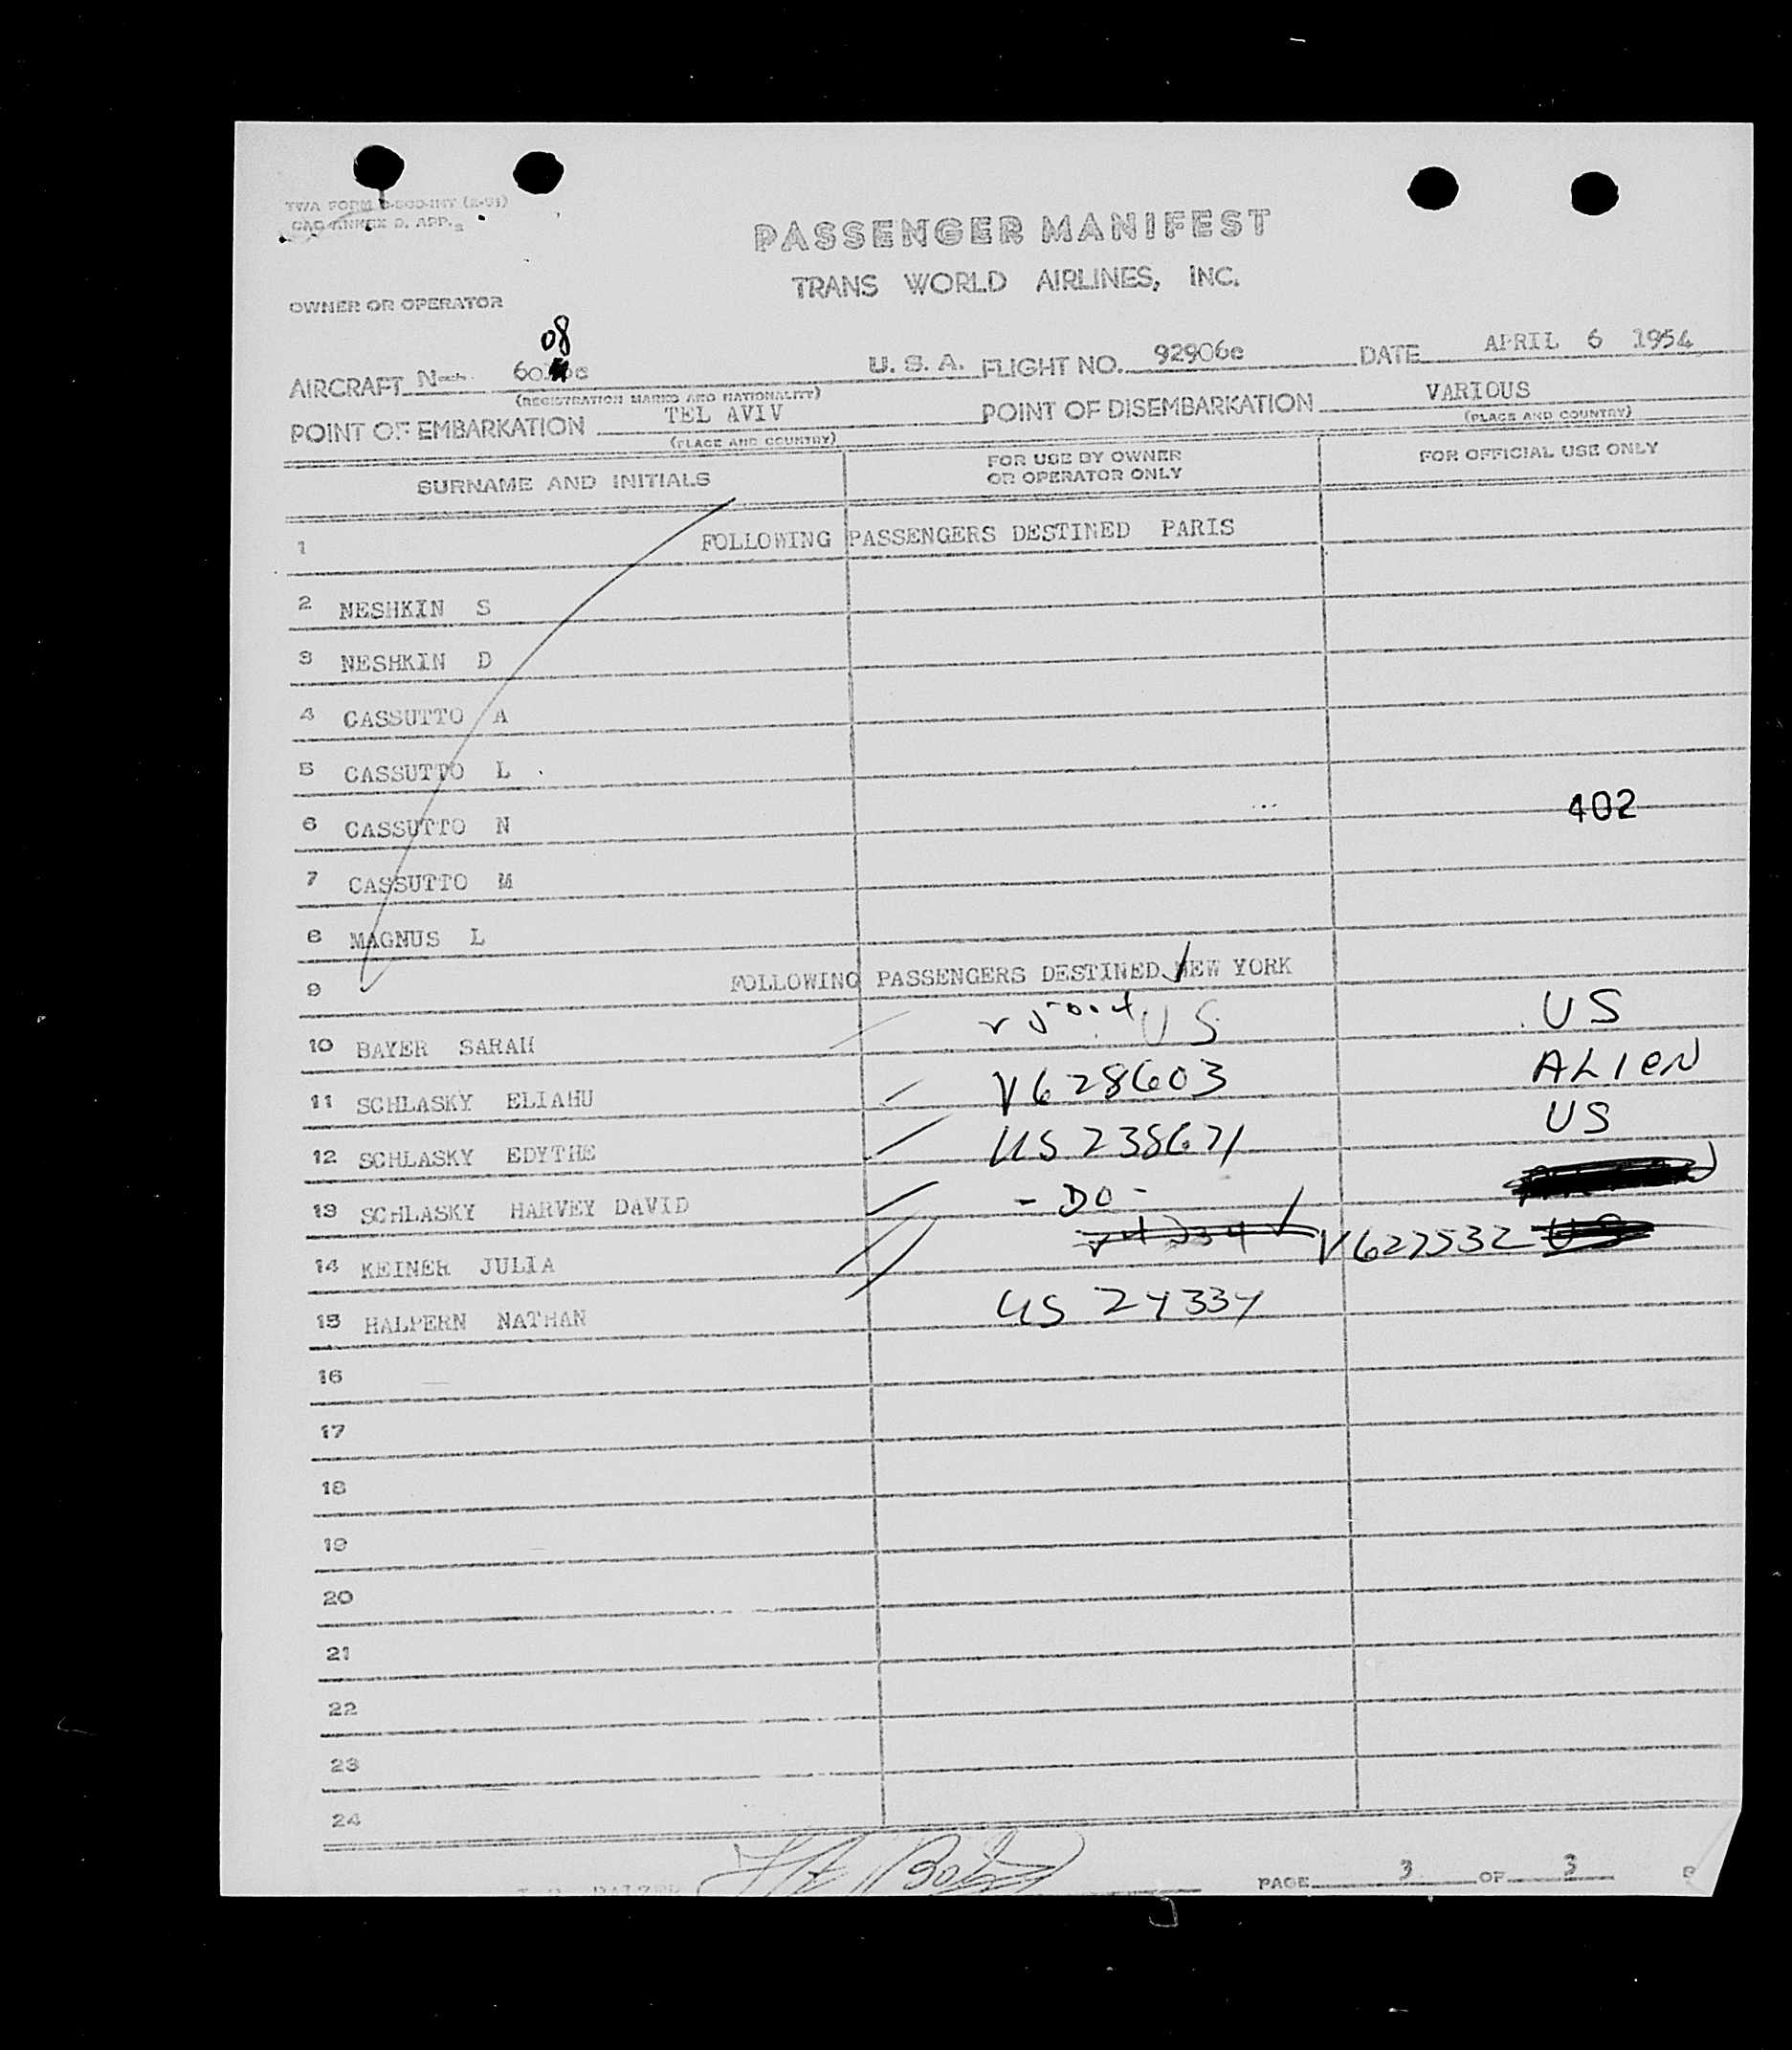 PASSENGER MANIFEST
TRANS WORLD AIRLINES, INC.
OWNER OR OPERATOR
08
AIRCRAFT U. S. A. FLIGHT NO. 92906e DATE APRIL 6 1954
(REGISTRATION MARKS AND NATIONALITY)
POINT OF EMBARKATION TEL AVIV POINT OF DISEMBARKATION VARIOUS
(PLACE AND COUNTRY) (PLACE AND COUNTRY)
SURNAME AND INITIALS FOR USE BY OWNER OR OPERATOR ONLY FOR OFFICIAL USE ONLY
1 FOLLOWING PASSENGERS DESTINED PARIS
2 NESHKIN S
3 NESHKIN D
4 CASSUTTO A
5 CASSUTTO L
6 CASSUTTO N 402
7 CASSUTTO M
8 MAGNUS L
9 FOLLOWING PASSENGERS DESTINED NEW YORK
10 BAYER SARAH US US
11 SCHLASKY ELIAHU V628603 ALIEN
12 SCHLASKY EDYTHE US 238671 US
13 SCHLASKY HARVEY DAVID - DO -
14 KEINER JULIA V627532 US
15 HALPERN NATHAN
16
17
18
19
20
21
22
23
24
PAGE 3 OF 3